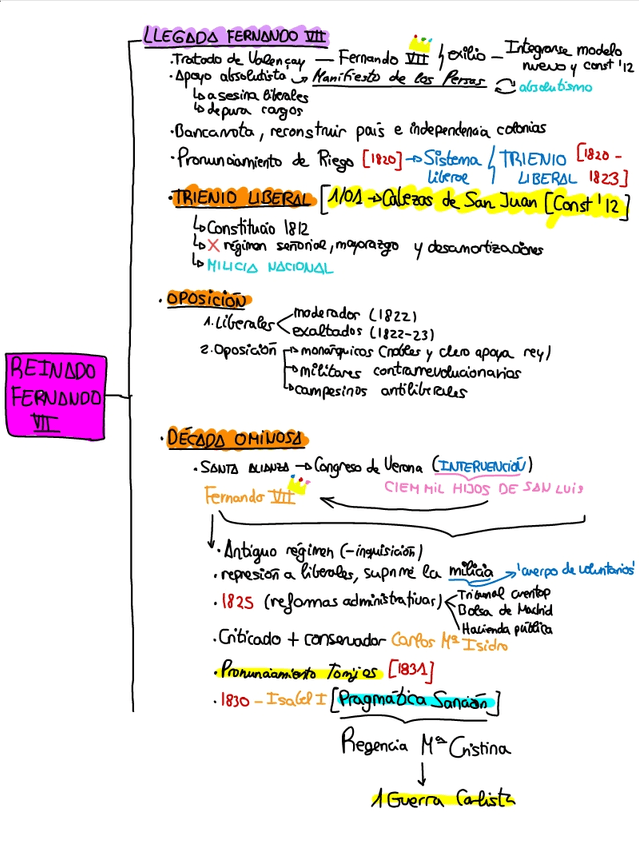 LLEGADA FERNANDO VII
· Tratado de Valençay — Fernando VII / exilio — Integrarse modelo nuevo y const '12
· Apoyo absolutista → Manifiesto de los Persas absolutismo
↳ asesina liberales
↳ depura cargos
· Bancarrota, reconstruir país e independencia colonias
· Pronunciamiento de Riego [1820] → Sistema liberal / TRIENIO LIBERAL [1820-1823]
· TRIENIO LIBERAL [1/01 → Cabezas de San Juan [Const '12]
↳ Constitució 1812
↳ X régimen señorial, mayorazgo y desamortizaciones
↳ MILICIA NACIONAL
· OPOSICIÓN
1. Liberales
moderador (1822)
exaltados (1822-23)
2. Oposición
monárquicos (nobles y clero apoya rey)
militares contrarrevolucionarios
campesinos antiliberales
REINADO
FERNANDO
VII
· DÉCADA OMINOSA
· SANTA ALIANZA → Congreso de Verona (INTERVENCIÓN)
Fernando VII CIEM MIL HIJOS DE SAN LUIS
· Antiguo régimen (-inquisición)
· represión a liberales, suprime la milicia → 'cuerpo de voluntarios'
· 1825 (reformas administrativas)
Tribunal cuentas
Bolsa de Madrid
Hacienda pública
· Criticado + conservador Carlos Mª Isidro
· Pronunciamiento Torrijos [1831]
· 1830 - Isabel I [Pragmática Sanción]
Regencia Mª Cristina
1 Guerra Carlista